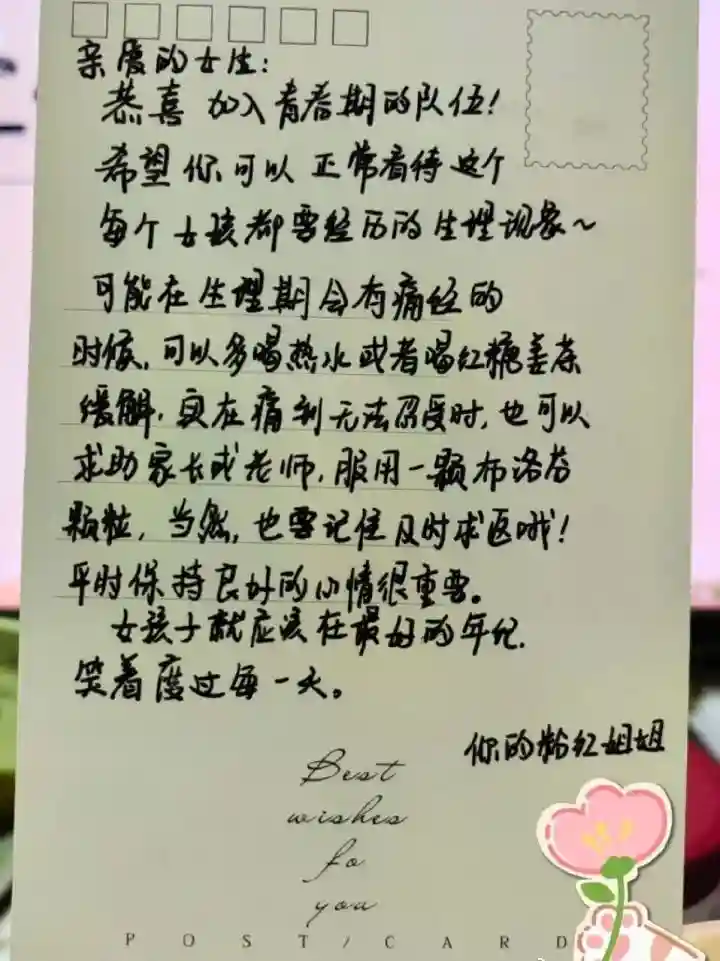 亲爱的女生:
恭喜 加入青春期的队伍!
希望你可以正常看待这个
每个女孩都要经历的生理现象~
可能在生理期会有痛经的
时候,可以多喝热水或者喝红糖姜茶
缓解.实在痛到无法忍受时,也可以
求助家长或老师,服用一颗布洛芬
颗粒,当然,也要记住及时求医哦!
平时保持良好的心情很重要。
女孩子就应该在最好的年纪.
笑着度过每一天。
你的粉红姐姐
Best
wishes
fo
you
POST/CARD